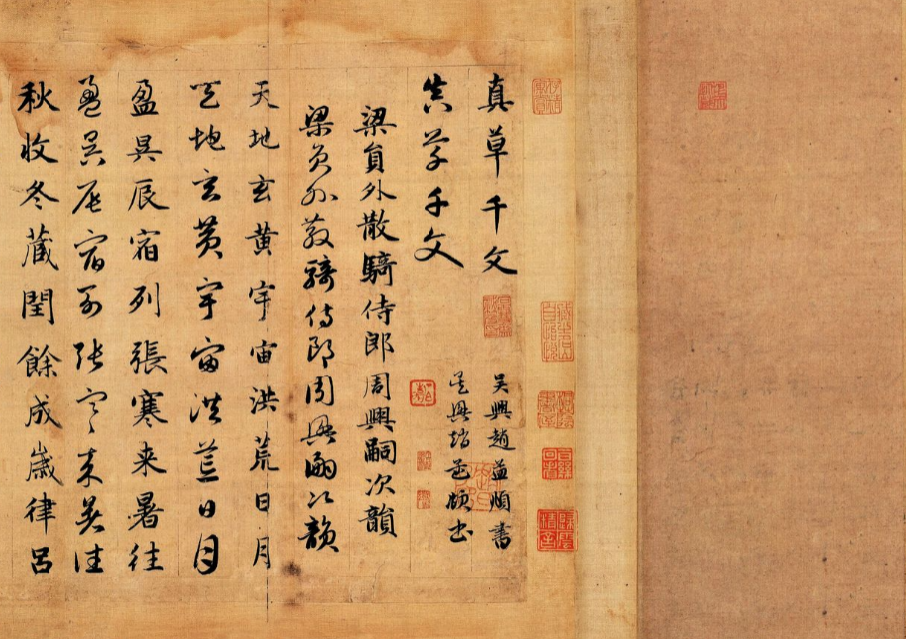 真草千文
吳興趙孟頫書
真草千文
吳興趙孟頫書
梁員外散騎侍郎周興嗣次韻
梁員外散騎侍郎周興嗣次韻
天地玄黃宇宙洪荒日月
天地玄黃宇宙洪荒日月
盈昃辰宿列張寒来暑往
盈昃辰宿列張寒来暑往
秋收冬藏閏餘成歲律呂